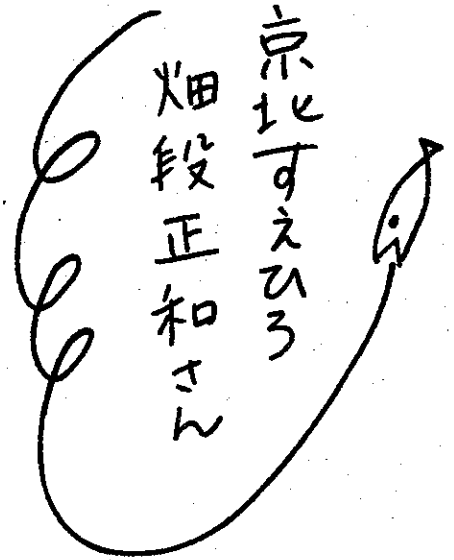 京北すえひろ
畑段正和さん